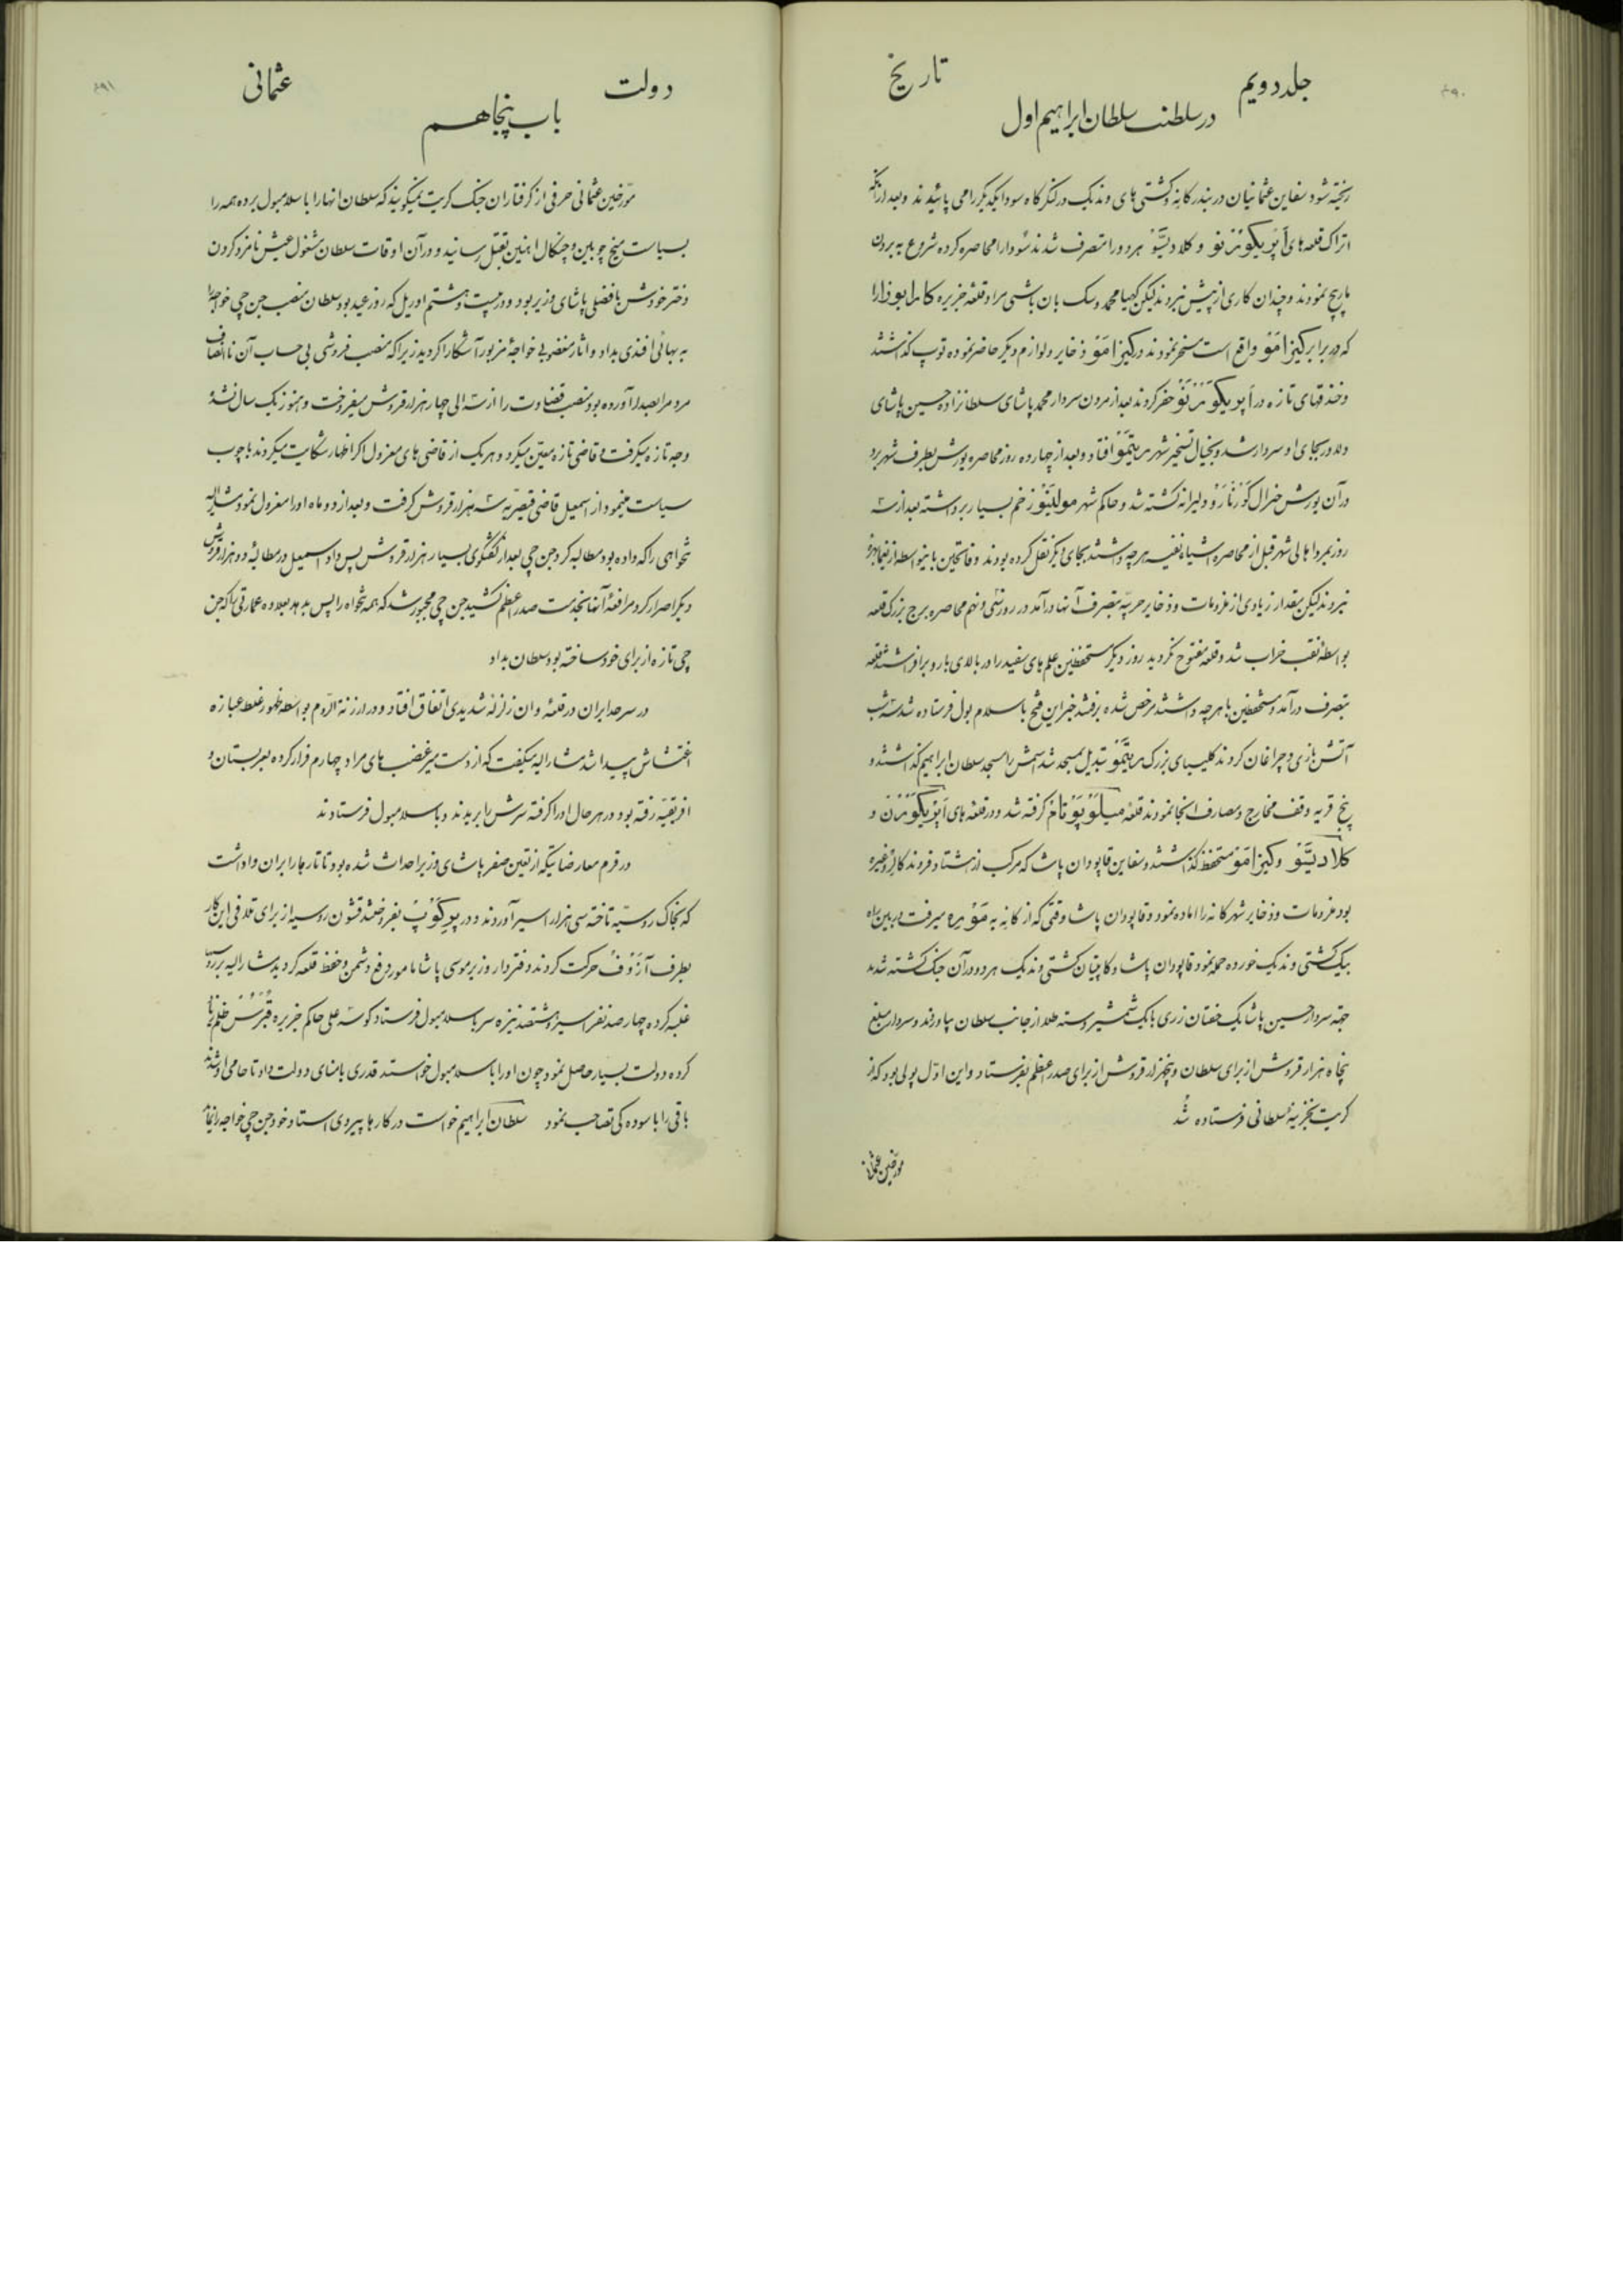 ۶۹۰
جلد دویم
تاریخ
در سلطنت سلطان ابراهیم اول
ریخته شود سفاین عثمانیان در بندر کانه و کشتی های وندیک در لنگرگاه سودا یکدیگر را می پائیدند و بعد از آنکه
اتراک قلعه های اَپریکوُرنو و کلادیسَّو هر دو را متصرف شدند سودا را محاصره کرده شروع به بردن
مارپیچ نمودند و چندان کاری از پیش نبردند لیکن کهیا محمد و سک بان باشی مراد قلعه جزیره کارابوزا را
که در برابر کیزامَو واقع است مسخر نمودند در کیزامَو ذخایر و لوازم دیگر حاضر نموده توپ گذاشتند
و خندقهای تازه در اَپریکوَرنَو حفر کردند بعد از مردن سردار محمد پاشای سلطانزاده حسین پاشای
دلاور بجای او سردار شد و بخیال تسخیر شهر ریتِمَّو افتاد و بعد از چهارده روز محاصره یورش بطرف شهر برد
در آن یورش جنرال کوَرنارَو دلیرانه کشته شد و حاکم شهر مولینَو زخم بسیار برداشته بعد از سه
روز بمرد اهالی شهر قبل از محاصره اشیاء نفیسه هر چه داشتند بجای دیگر نقل کرده بودند و فاتحین باینواسطه از یغما بهره
نبردند لیکن مقدار زیادی از ملزومات و ذخایر حربیّه بتصرف آنها درآمد در روز سی و نهم محاصره برج بزرگ قلعه
بواسطه نقب خراب شد و قلعه مفتوح نگردید روز دیگر مستحفظین علم های سفید را در بالای بارو برافراشتند قلعه
بتصرف درآمد و مستحفظین با هر چه داشتند مرخص شده برفتند خبر این فتح باسلامبول فرستاده شد سه شب
آتش بازی و چراغان کردند کلیسیای بزرگ ریتِمَّو تبدیل بمسجد شد اسمش را مسجد سلطان ابراهیم گذاشتند و
پنج قریه وقف مخارج و مصارف آنجا نمودند قلعه میلَوپَوتامَ گرفته شد و در قلعه های اَپریکوَرنَ و
کلادیسَّو و کیزامَو مستحفظ گذاشتند و سفاین قاپودان پاشا که مرکب از هشتاد فروند کالر و غیره
بود ملزومات و ذخایر شهر کانه را اماده نمود و قاپودان پاشا وقتی که از کانه به مَوره میرفت در بین راه
بیک کشتی وندیک خورده حمله نمود قاپودان پاشا و کاپیتان کشتی وندیک هر دو در آن جنگ کشته شدند
جهة سردار حسین پاشا یک خفتان زری با یک شمشیر دسته طلا از جانب سلطان بیاوردند و سردار مبلغ
پنجاه هزار قروش از برای سلطان و پنجهزار قروش از برای صدر اعظم بفرستاد و این اوّل پولی بود که از
کریت بخزینه سلطانی فرستاده شد
مورّخین عثمانی
۶۹۱
دولت
عثمانی
باب پنجاهم
مورّخین عثمانی حرفی از گرفتاران جنگ کریت نمیگویند که سلطان انها را باسلامبول برده همه را
بسیاست میخ چوبین و چنگال اهنین بقتل رسانید و در آن اوقات سلطان مشغول عیش نامزد کردن
دختر خودش با فضلی پاشای وزیر بود و در بیست و هشتم اوریل که روز عید بود سلطان منصب جن چی خواجه را
به بهائی افندی بداد و اثار مغضوبی خواجهٔ مزبور آشکارا گردید زیرا که منصب فروشی بی حساب آن ناانصاف
مردمرا بصدا آورده بود منصب قضاوت را از سه الی چهار هزار قروش میفروخت و هنوز یک سال نشده
وجه تازه میگرفت و قاضی تازه معین میکرد و هر یک از قاضی های معزول اگر اظهار شکایت میکردند با چوب
سیاست مینمود از اسمعیل قاضی قیصریّه سه هزار قروش گرفت و بعد از دو ماه او را معزول نمود مشارالیه
تنخواهی را که داده بود مطالبه کرد جن چی بعد از گفتگوی بسیار هزار قروش پس داد اسمعیل در مطالبهٔ دو هزار قروش
دیگر اصرار کرد مرافعهٔ آنها بخدمت صدر اعظم کشید جن چی مجبور شد که همه تنخواه را پس بدهد بعلاوه عمارتی را که جن
چی تازه از برای خود ساخته بود سلطان بداد
در سرحد ایران در قلعهٔ وان زلزلهٔ شدیدی اتفاق افتاد و در ارزنة الرّوم بواسطه ظهور غلط عبازه
اغتشاش پیدا شد مشارالیه میگفت که از دست میرغضب های مراد چهارم فرار کرده بعربستان و
افریقیّه رفته بود در هر حال او را گرفته سرش را بریدند و باسلامبول فرستادند
در قرم معارضاتیکه از تعین صفر پاشای وزیر احداث شده بود تاتارها را بران واداشت
که بخاک روسیّه تاخته سی هزار اسیر آوردند و در پرکوَپ بفروختند قشون روسیه از برای تلافی این کار
بطرف آزوَف حرکت کردند و فتردار وزیر موسی پاشا مامور دفع دشمن و حفظ قلعه گردید مشارالیه بر روسها
غلبه کرده چهار صد نفر اسیر و هشتصد نیزه سر باسلامبول فرستاد کوسه علی حاکم جزیره قبرس ظلمها
کرده دولت بسیار حاصل نمود چون او را باسلامبول خواستند قدری بامنای دولت داد تا حامی او شدند
باقی را باسوده کی تصاحب نمود سلطان ابراهیم خواست در کارها پیروی استاد خود جن چی خواجه را نماید